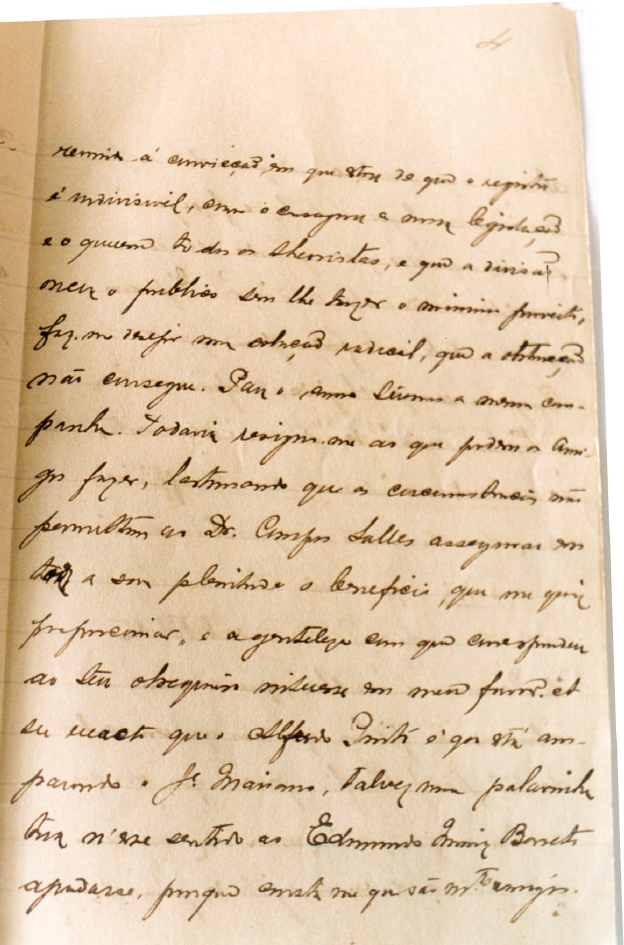 4
reunir á convicção em que estou de que o registro
é indivisivel, como o consagra a nossa legislação
e o querem todos os theoristas, e que a divisão
onera o publico sem lhe trazer o minimo proveito,
faz-me desejar uma solução radical, que a obtenção
não consegue. Para o amo Sérvono a mesma cam-
panha. Todavia resigno-me ao que podem os ami-
gos fazer, lastimando que as circumstancias não
permittam ao Dr. Campos Salles assegurar em
toda a sua plenitude o beneficio, que me quiz
proporcionar, e a gentileza com que correspondeu
ao teu obsequioso interesse em meu favor.
se exacto que o Alfredo Pinto é que está am-
parando o Je Mariano, talvez uma palavrinha
tua n'esse sentido ao Edmundo Muniz Barreto
ajudasse, porque consta-me que são mto amigos.